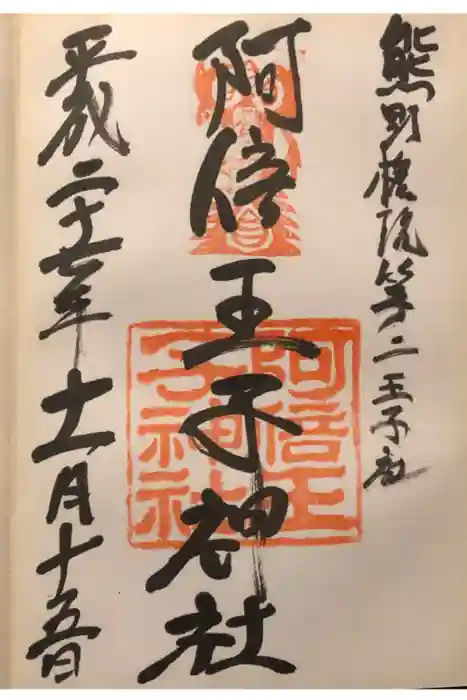 熊野權現第二王子社
阿倍王子神社
平成二十七年十一月十五日
阿倍王
子神社